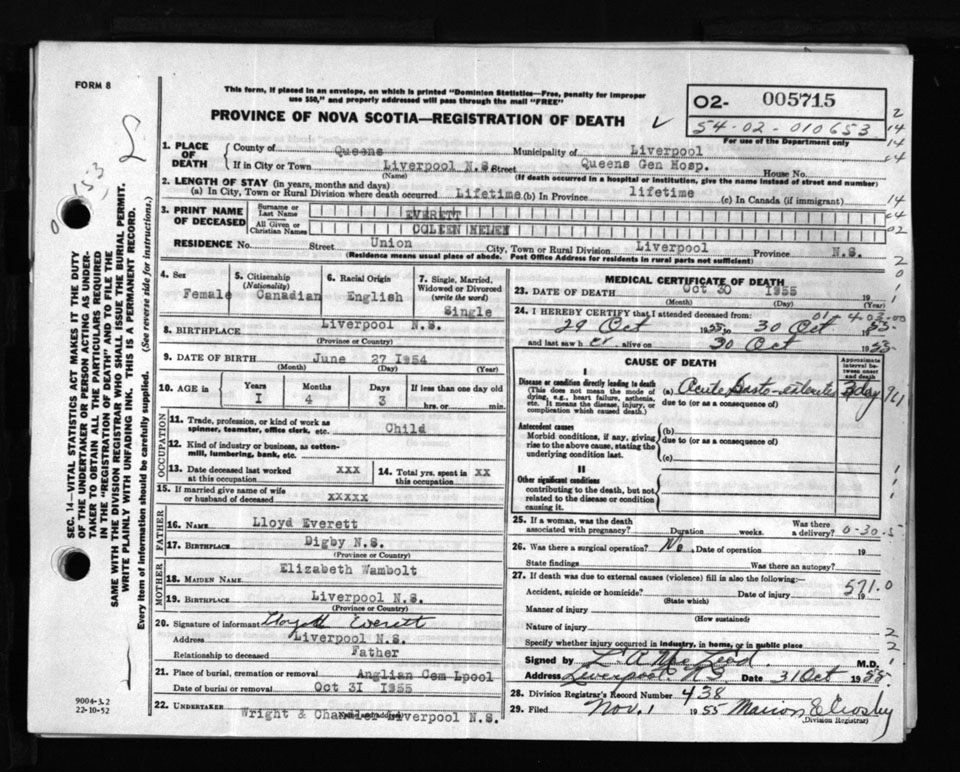 FORM 8
This form, if placed in an envelope, on which is printed "Dominion Statistics—Free, penalty for improper
use $50," and properly addressed will pass through the mail "FREE"
PROVINCE OF NOVA SCOTIA—REGISTRATION OF DEATH
02- 005715
54-02-010653
For use of the Department only
153
SEC. 14—VITAL STATISTICS ACT MAKES IT THE DUTY
OF THE UNDERTAKER OR PERSON ACTING AS UNDER-
TAKER TO OBTAIN ALL THE PARTICULARS REQUIRED
IN THE "REGISTRATION OF DEATH" AND TO FILE THE
SAME WITH THE DIVISION REGISTRAR WHO SHALL ISSUE THE BURIAL PERMIT.
WRITE PLAINLY WITH UNFADING INK. THIS IS A PERMANENT RECORD.
Every item of information should be carefully supplied. (See reverse side for instructions.)
1. PLACE OF DEATH
County of Queens Municipality of Liverpool
If in City or Town Liverpool N.S Street Queens Gen Hosp. House No.
(Name) (If death occurred in a hospital or institution, give the name instead of street and number)
2. LENGTH OF STAY (in years, months and days)
(a) In City, Town or Rural Division where death occurred Lifetime (b) In Province lifetime (c) In Canada (if immigrant)
3. PRINT NAME OF DECEASED
Surname or Last Name EVERETT
All Given or Christian Names COLEEN HELEN
RESIDENCE No. Street Union City, Town or Rural Division Liverpool Province N.S.
(Residence means usual place of abode. Post Office Address for residents in rural parts not sufficient)
4. Sex Female
5. Citizenship (Nationality) Canadian
6. Racial Origin English
7. Single, Married, Widowed or Divorced (write the word) Single
8. BIRTHPLACE Liverpool N.S.
(Province or Country)
9. DATE OF BIRTH June 27 1954
(Month) (Day) (Year)
10. AGE in Years Months Days If less than one day old
1 4 3 hrs. or min.
OCCUPATION
11. Trade, profession, or kind of work as spinner, teamster, office clerk, etc. Child
12. Kind of industry or business, as cotton-mill, lumbering, bank, etc.
13. Date deceased last worked at this occupation xxx
14. Total yrs. spent in this occupation xx
15. If married give name of wife or husband of deceased xxxxx
FATHER
16. NAME Lloyd Everett
17. BIRTHPLACE Digby N.S.
(Province or Country)
MOTHER
18. MAIDEN NAME Elizabeth Wambolt
19. BIRTHPLACE Liverpool N.S.
(Province or Country)
20. Signature of informant Lloyd Everett
Address Liverpool N.S.
Relationship to deceased Father
21. Place of burial, cremation or removal Anglian Cem Lpool
Date of burial or removal Oct 31 1955
22. UNDERTAKER Wright & Chandler Liverpool N.S.
9004-3.2
22-10-52
MEDICAL CERTIFICATE OF DEATH
23. DATE OF DEATH Oct 30 1955 19
(Month) (Day)
24. I HEREBY CERTIFY that I attended deceased from:
29 Oct 1955 to 30 Oct 1955
and last saw her alive on 30 Oct 1955
CAUSE OF DEATH
Approximate interval between onset and death
I
Disease or condition directly leading to death
(This does not mean the mode of dying, e.g., heart failure, asthenia, etc. It means the disease, injury, or complication which caused death.)
(a) Acute Gastro-enteritis day
due to (or as a consequence of)
Antecedent causes
Morbid conditions, if any, giving rise to the above cause, stating the underlying condition last.
(b)
due to (or as a consequence of)
(c)
II
Other significant conditions
contributing to the death, but not related to the disease or condition causing it.
25. If a woman, was the death associated with pregnancy? Duration weeks. Was there a delivery? 0-30-5
26. Was there a surgical operation? No Date of operation 19
State findings Was there an autopsy?
27. If death was due to external causes (violence) fill in also the following:—
Accident, suicide or homicide? Date of injury 19
571.0
(State which)
Manner of injury
(How sustained)
Nature of injury
Specify whether injury occurred in industry, in home, or in public place
Signed by L. A. McLeod. M.D.
Address Liverpool N.S. Date 31 Oct 1955.
28. Division Registrar's Record Number 438
29. Filed Nov. 1 1955 Marion E Crosby
(Division Registrar)